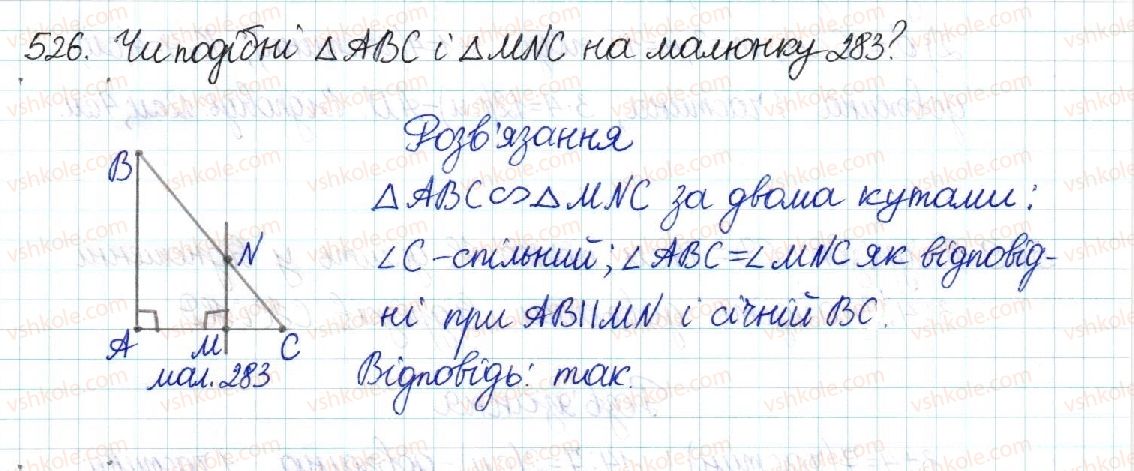 526. Чи подібні △ABC і △MNC на малюнку 283?
Розв'язання
△ABC∽△MNC за двома кутами:
∠C – спільний; ∠ABC=∠MNC як відповід-
ні при AB||MN і січній BC.
Відповідь: так.
B
N
A
M
C
мал. 283